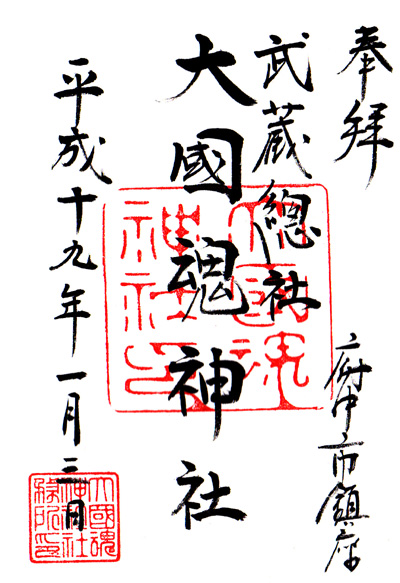 奉拜
府中市鎮座
武蔵總社
大國魂神社
平成十九年一月三日
大國魂
神社印
大國魂
神社
務所印